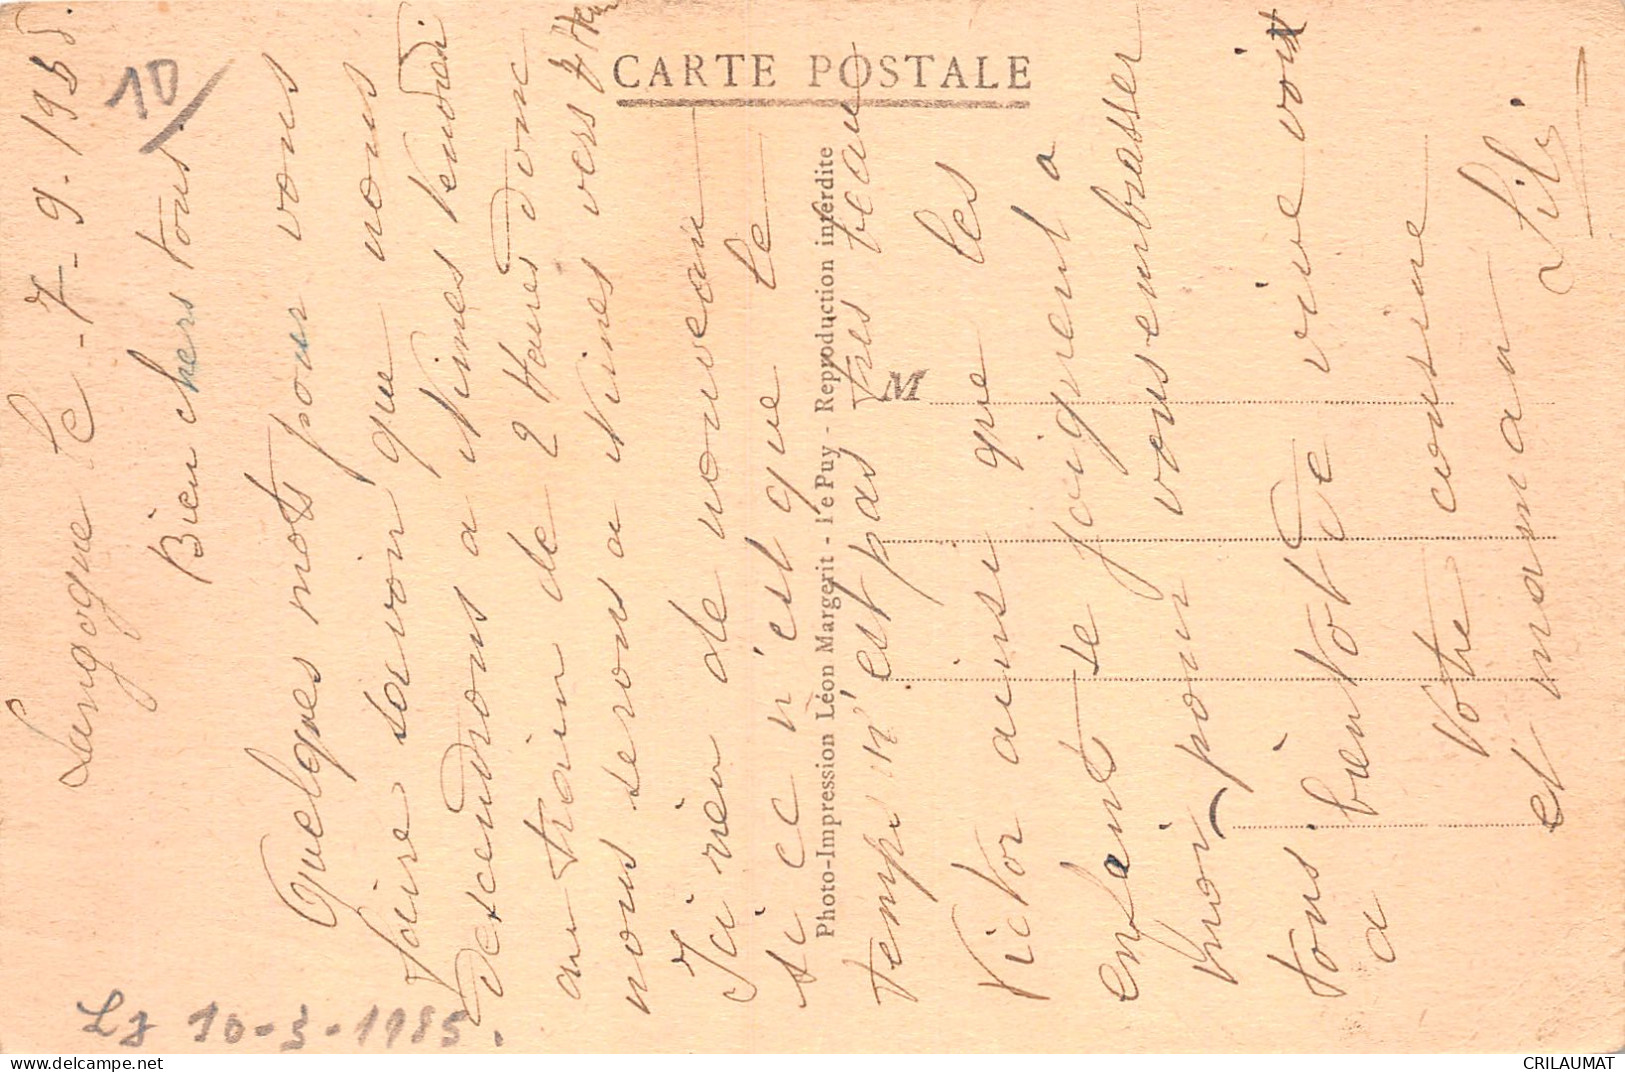 CARTE POSTALE
Photo-Impression Léon Margerit - le Puy - Reproduction interdite
M
10
Langogne le - 7 - 9 - 1935.
Bien chers tous.
Quelques mots pour vous
faire savoir que nous
descendrons a Nimes Vendredi
au train de 2 Heures donc
nous serons a Nimes vers 7 H
Ici rien de nouveau
si ce n'est que le le
temps n'est pas très beau
Victor ainsi que les
enfants se joignent a
moi pour vous embrasser
tous bientot de vive voix
a
Votre cousine
et maman Lili
10-3-1985.
CRILAUMAT